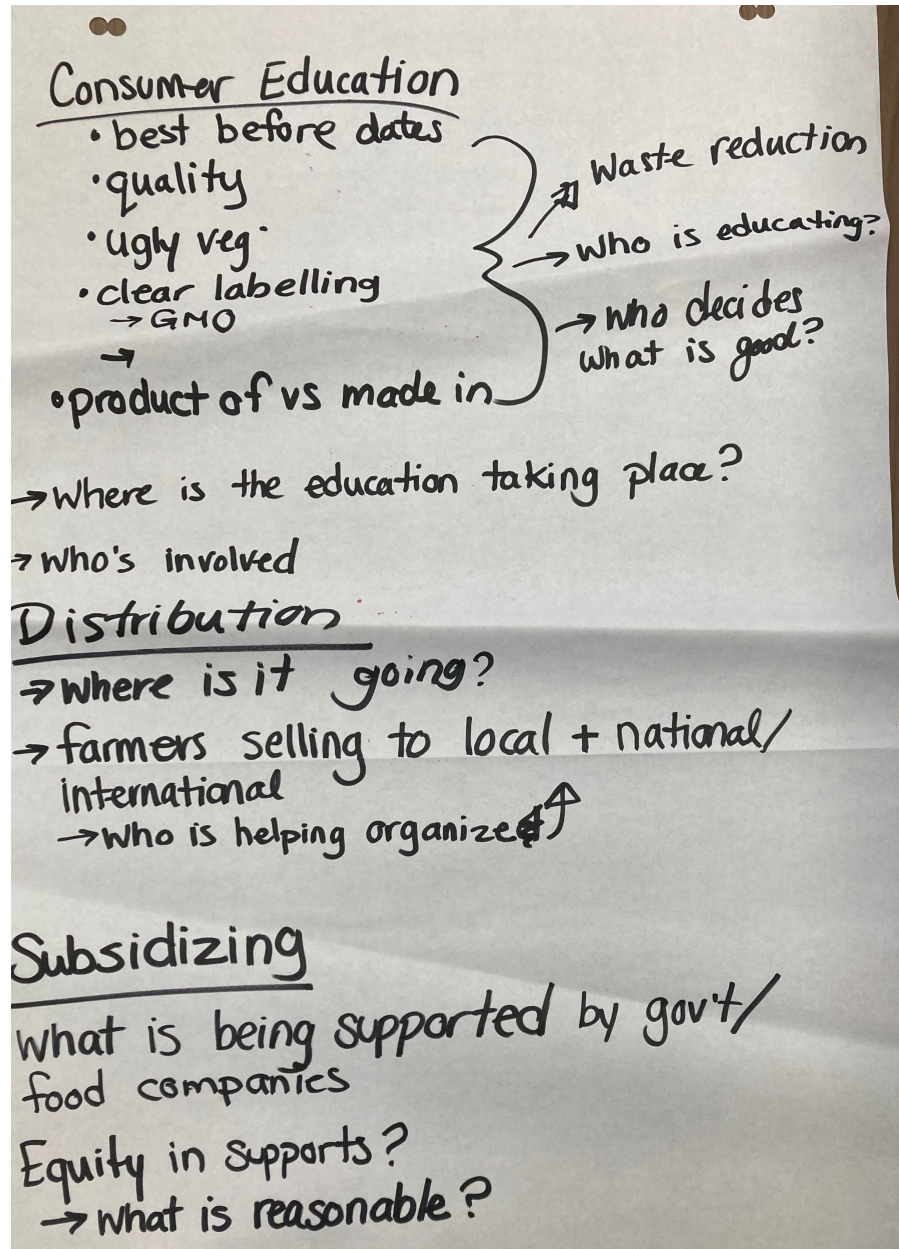 Consumer Education
• best before dates
• quality
• ugly veg
• clear labelling
→ GMO
→
• product of vs made in
→ Waste reduction
→ who is educating?
→ who decides
what is good?
→ Where is the education taking place?
→ who's involved
Distribution
→ where is it going?
→ farmers selling to local + national/
international
→ Who is helping organize ↑
Subsidizing
What is being supported by gov't/
food companies
Equity in supports?
→ What is reasonable?